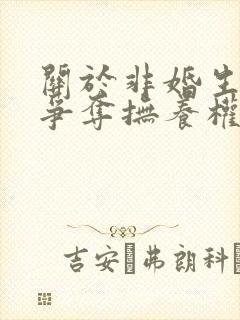 關於非婚生
爭奪撫養權
吉安·弗朗科